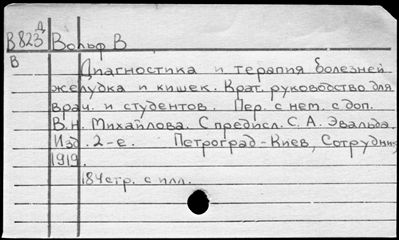 Д
В823 Вольф В
В
Диагностика и терапия болезней
желудка и кишек. Крат. руководство для
врач. и студентов. Пер. с нем. с доп.
В.Н. Михайлова. С предисл. С.А. Эвальда.
Изд. 2-е. Петроград-Киев, Сотрудник
1919.
184стр. с илл.